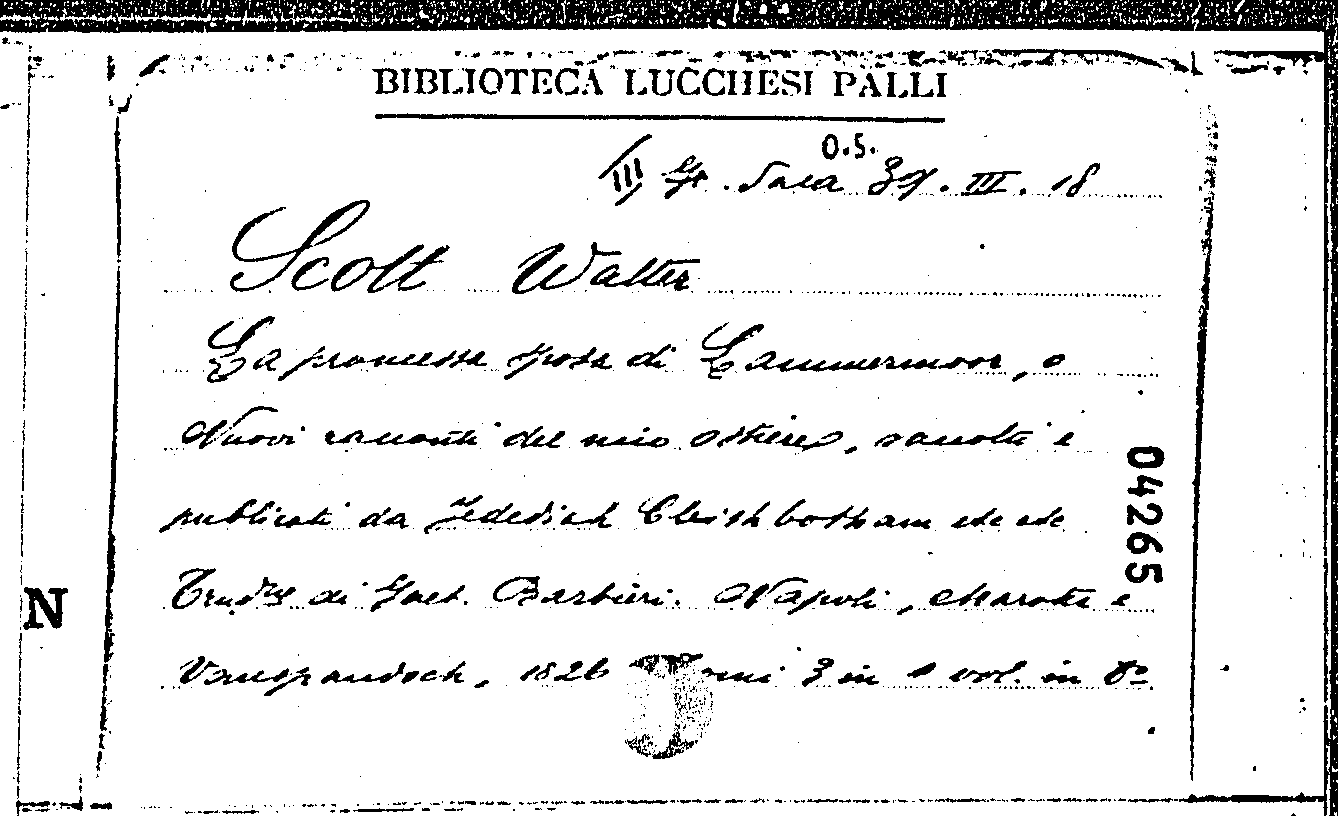 BIBLIOTECA LUCCHESI PALLI
O.S.
III Gr. Sala 39. III. 18
Scott Walter
La promessa sposa di Lammermoor, o
Nuovi racconti del mio ostiere, raccolti e
publicati da Jedediah Cleishbotham etc etc
di Gaet. Barbieri. Napoli, Marotta e
Vanspandoch, 1826 Tomi 3 in 1 vol. in 8º
04265
N